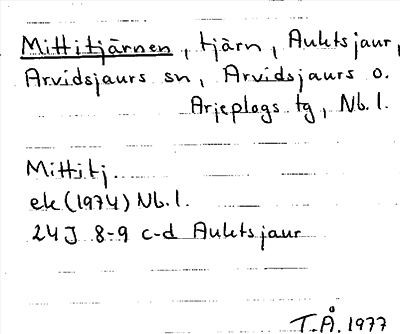 Mittitjärnen, tjärn, Auktsjaur,
Arvidsjaurs sn, Arvidsjaurs o.
Arjeplogs tg, Nb.l.
Mittitj.
ek (1974) Nb.l.
24J 8-9 c-d Auktsjaur
T.Å. 1977